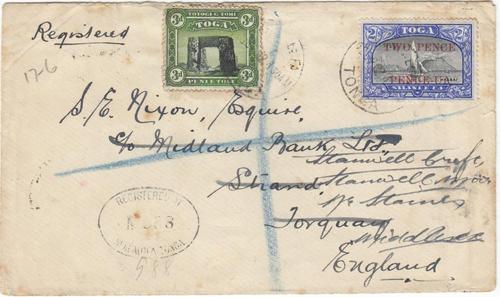 Registered
176
TOTOGI E TOMI
TOGA
3d 3d
PENI E TOGA
2/- TOGA 2/-
TWO PENCE
PENI E UA
TONGA
S. E. Nixon, Esquire,
c/o Midland Bank Ltd
Strand
Torquay
England
Stanwell
Stanwell Moor
Nr Staines
Middlesex
REGISTERED
TONGA
588